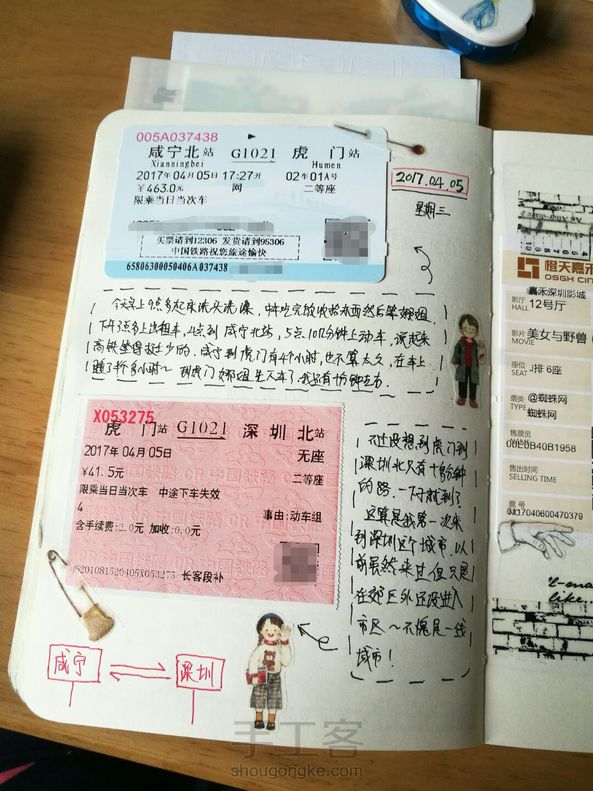 005A037438
咸宁北站 G1021 虎门站
Xianningbei Humen
2017年04月05日 17:27开 02车01A号
￥463.0元 网 二等座
限乘当日当次车
买票请到12306 发货请到95306
中国铁路祝您旅途愉快
65806300050406A037438
2017.04.05
星期三
今天早上9点多起床洗头洗澡，中午吃完饭收拾东西然后等娜姐
下午3点多上出租车，4点到咸宁北站，5点10几分钟上动车，说起来
高铁坐得挺少的，咸宁到虎门有4个小时，也不算太久，在车上
睡了1个多小时～到虎门娜姐先下车了，我还有十分钟左右.
X053275
虎门站 G1021 深圳北站
2017年04月05日 无座
￥41.5元 二等座
限乘当日当次车 中途下车失效
4 事由:动车组
含手续费:2.0元 加收:0.0元
6520108152040​5X053275 长客段补
不过没想到虎门到
深圳北只有十几分钟
的路，一下就到了
这算是我第一次来
到深圳这个城市，以
前虽然来过但只是
在郊区外还没进入
市区～不愧是一线
城市！
咸宁 深圳
橙天嘉禾
OSGH CIN
嘉禾深圳影城
影厅 HALL 12号厅
影片 MOVIE 美女与野兽
座位 SEAT J排 6座
票类 TYPE @蜘蛛网
蜘蛛网
售票员
00E0B40B1958
售出时间
SELLING TIME
票号
041704060047​0379
like...
手工客
shougongke.com